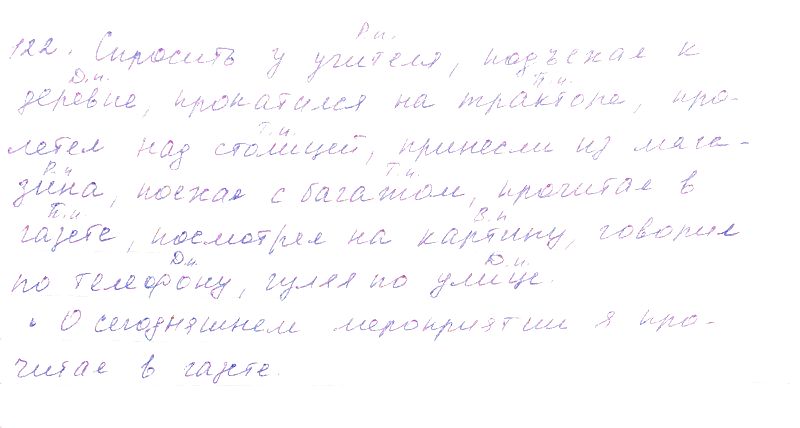 Р.п.
122. Спросить у учителя, подъехал к
Д.п. П.п.
деревне, прокатился на тракторе, про-
Т.п.
летел над столицей, принесли из мага-
Р.п Т.п.
зина, поехал с багажом, прочитал в
П.п В.п
газете, посмотрел на картину, говорил
Д.п. Д.п.
по телефону, гулял по улице.
О сегодняшнем мероприятии я про-
читал в газете.